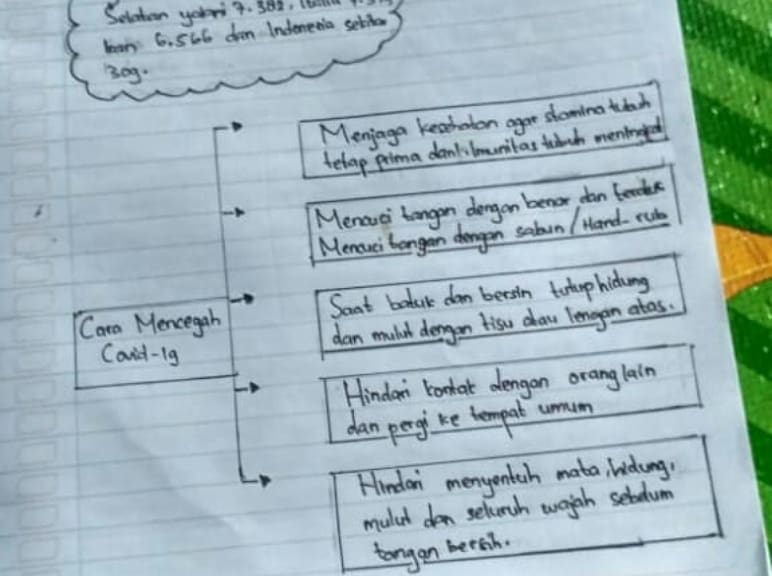 Selatan yakni 7.382,
Iran 6.566 dan Indonesia sekitar
309.
Menjaga kesehatan agar stamina tubuh
tetap prima dan Imunitas tubuh meningkat
Mencuci tangan dengan benar dan
Mencuci tangan dengan sabun / Hand-rub
Saat batuk dan bersin tutup hidung
dan mulut dengan tisu atau lengan atas.
Cara Mencegah
Covid-19
Hindari kontak dengan orang lain
dan pergi ke tempat umum
Hindari menyentuh mata, hidung,
mulut dan seluruh wajah sebelum
tangan bersih.